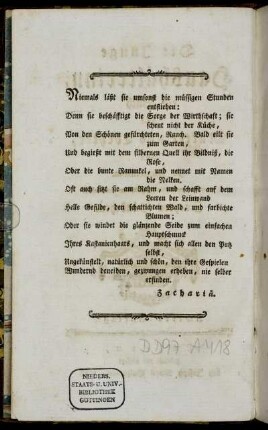 Niemals läßt sie umsonst die müssigen Stunden
entfliehen;
Denn sie beschäftigt die Sorge der Wirthschaft; sie
scheut nicht der Küche,
Von den Schönen gefürchteten, Rauch. Bald eilt sie
zum Garten,
Und begießt mit dem silbernen Quell ihr Bildniß, die
Rose,
Oder die bunte Ranunkel, und nennet mit Namen
die Nelken.
Oft auch sitzt sie am Rahm, und schafft auf dem
Leeren der Leinwand
Helle Gefilde, den schattichten Wald, und farbichte
Blumen;
Oder sie windet die glänzende Seide zum einfachen
Hauptschmuck
Ihres Kastanienhaars, und macht sich allen den Putz
selbst,
Ungekünstelt, natürlich und schön, den ihre Gespielen
Wundernd beneiden, gezwungen erheben, nie selber
erfinden.
Zachariä.
DD97 A 418
NIEDERS.
STAATS- U. UNIV.-
BIBLIOTHEK
GÖTTINGEN